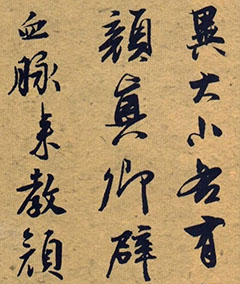 異大小各有
顔真卿辟
血脉来教顔